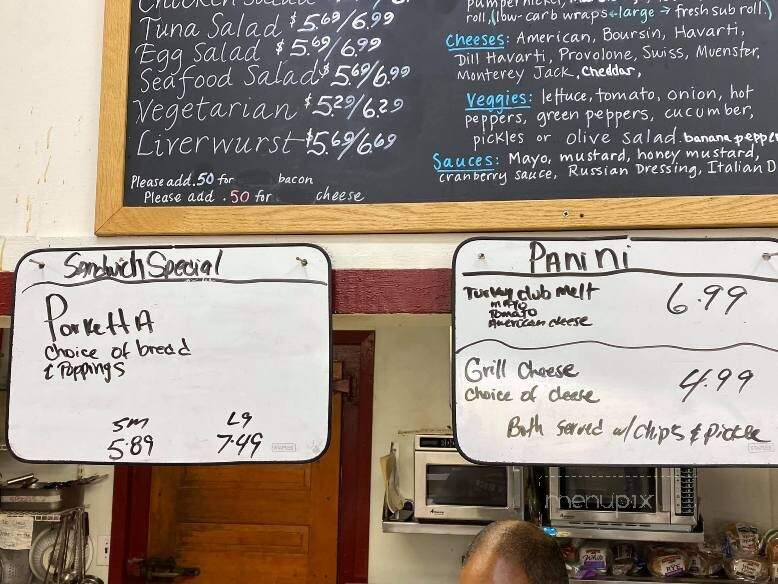 Chicken Salad
Tuna Salad $5.69/6.99
Egg Salad $5.69/6.99
Seafood Salad $5.69/6.99
Vegetarian $5.29/6.29
Liverwurst $5.69/6.69
Please add .50 for bacon
Please add .50 for cheese
roll, (low-carb wraps large → fresh sub roll)
Cheeses: American, Boursin, Havarti,
Dill Havarti, Provolone, Swiss, Muenster,
Monterey Jack, Cheddar,
Veggies: lettuce, tomato, onion, hot
peppers, green peppers, cucumber,
pickles or olive salad. banana pepper
Sauces: Mayo, mustard, honey mustard,
cranberry sauce, Russian Dressing, Italian D
Sandwich Special
Porketta
choice of bread
& Toppings
Sm Lg
5.89 7.49
STAPLES
Panini
Turkey club melt 6.99
mayo
Tomato
American cheese
Grill Cheese 4.99
choice of cheese
Both served w/ chips & pickle
menupix
RYE